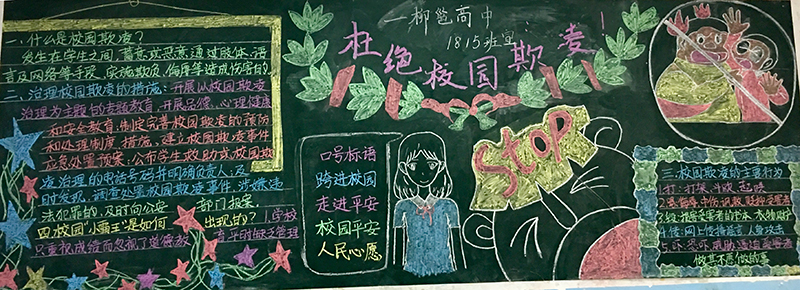 一柳邕高中
1815班宣
杜绝校园欺凌!
一、什么是校园欺凌?
发生在学生之间,蓄意或恶意通过肢体、语
言及网络等手段,实施欺负、侮辱等造成伤害的。
二、治理校园欺凌的措施:开展以校园欺凌
治理为主题的专题教育,开展品德、心理健康
和安全教育,制定完善校园欺凌的预防
和处理制度、措施,建立校园欺凌事件
应急处置预案,公布学生救助或校园欺
凌治理的电话号码并明确负责人,及
时发现、调查处置校园欺凌事件,涉嫌违
法犯罪的,及时向公安部门报案。
四、校园"小霸王"是如何出现的?1.学校
只重视成绩而忽视了道德教育平时缺乏管理
口号标语
跨进校园
走进平安
校园平安
人民心愿
Stop
三、校园欺凌的主要行为
1.打:打架、斗殴
4.传:网上传播谣言、人身攻击
做其不愿做的事